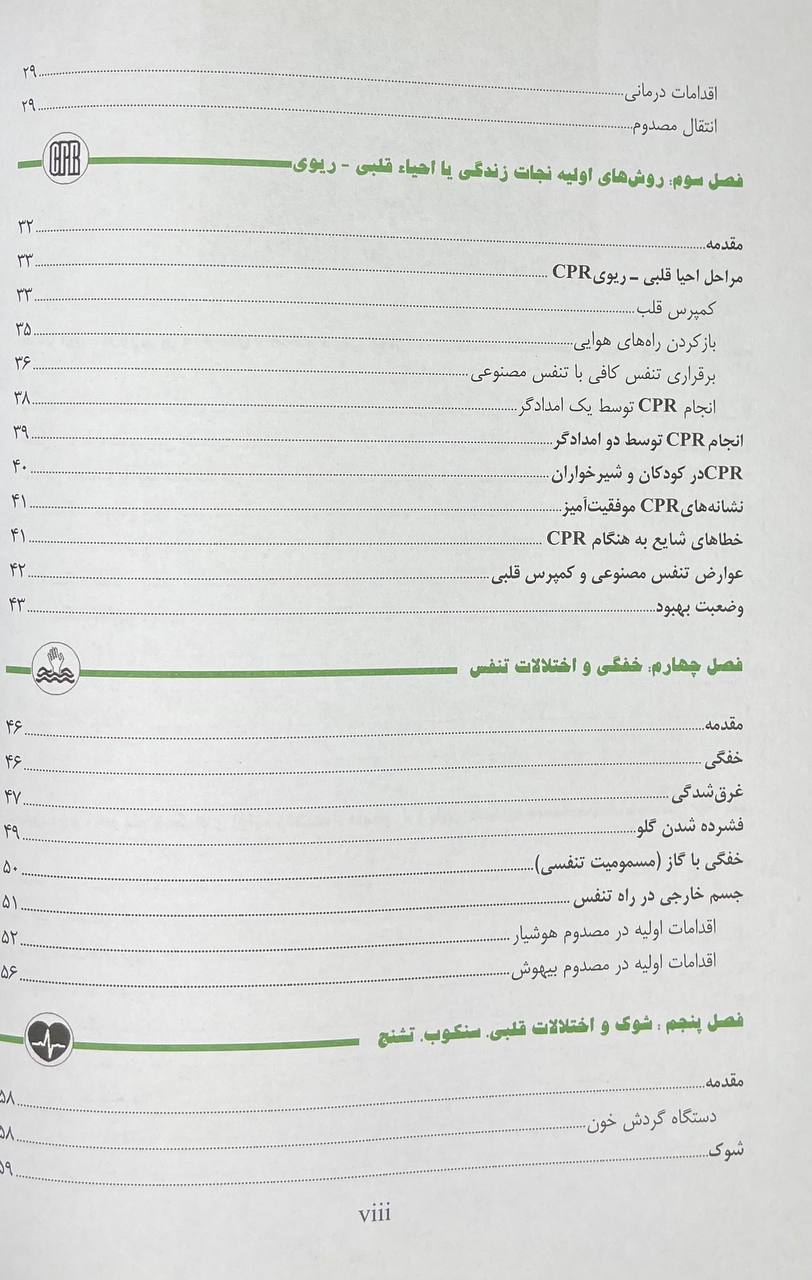 اقدامات درمانی ۲۹
انتقال مصدوم ۲۹
فصل سوم: روش‌های اولیه نجات زندگی یا احیاء قلبی - ریوی
CPR
مقدمه ۳۲
مراحل احیا قلبی ـ ریوی CPR ۳۳
کمپرس قلب ۳۳
بازکردن راه‌های هوایی ۳۵
برقراری تنفس کافی با تنفس مصنوعی ۳۶
انجام CPR توسط یک امدادگر ۳۸
انجام CPR توسط دو امدادگر ۳۹
CPR در کودکان و شیرخواران ۴۰
نشانه‌های CPR موفقیت‌آمیز ۴۱
خطاهای شایع به هنگام CPR ۴۱
عوارض تنفس مصنوعی و کمپرس قلبی ۴۲
وضعیت بهبود ۴۳
فصل چهارم: خفگی و اختلالات تنفس
مقدمه ۴۶
خفگی ۴۶
غرق‌شدگی ۴۷
فشرده شدن گلو ۴۹
خفگی با گاز (مسمومیت تنفسی) ۵۰
جسم خارجی در راه تنفس ۵۱
اقدامات اولیه در مصدوم هوشیار ۵۲
اقدامات اولیه در مصدوم بیهوش ۵۶
فصل پنجم : شوک و اختلالات قلبی، سنکوپ، تشنج
مقدمه ۵۸
دستگاه گردش خون ۵۸
شوک ۵۹
viii